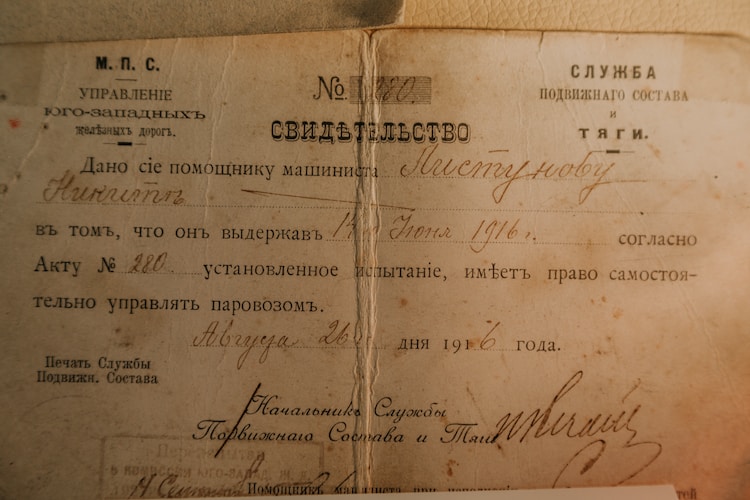 М. П. С.
УПРАВЛЕНІЕ
ЮГО-ЗАПАДНЫХЪ
желѣзныхъ дорогъ.
№ 280.
СЛУЖБА
ПОДВИЖНАГО СОСТАВА
И
ТЯГИ.
СВИДѢТЕЛЬСТВО
Дано сіе помощнику машиниста Пистунову
Никитѣ
въ томъ, что онъ выдержав Іюня 1916 г. согласно
Акту № 280. установленное испытаніе, имѣетъ право самостоя-
тельно управлять паровозомъ.
Августа 26 дня 1916 года.
Печать Службы
Подвижн. Состава
Начальникъ Службы
Подвижнаго Состава и Тяги
Помощникъ машиниста при